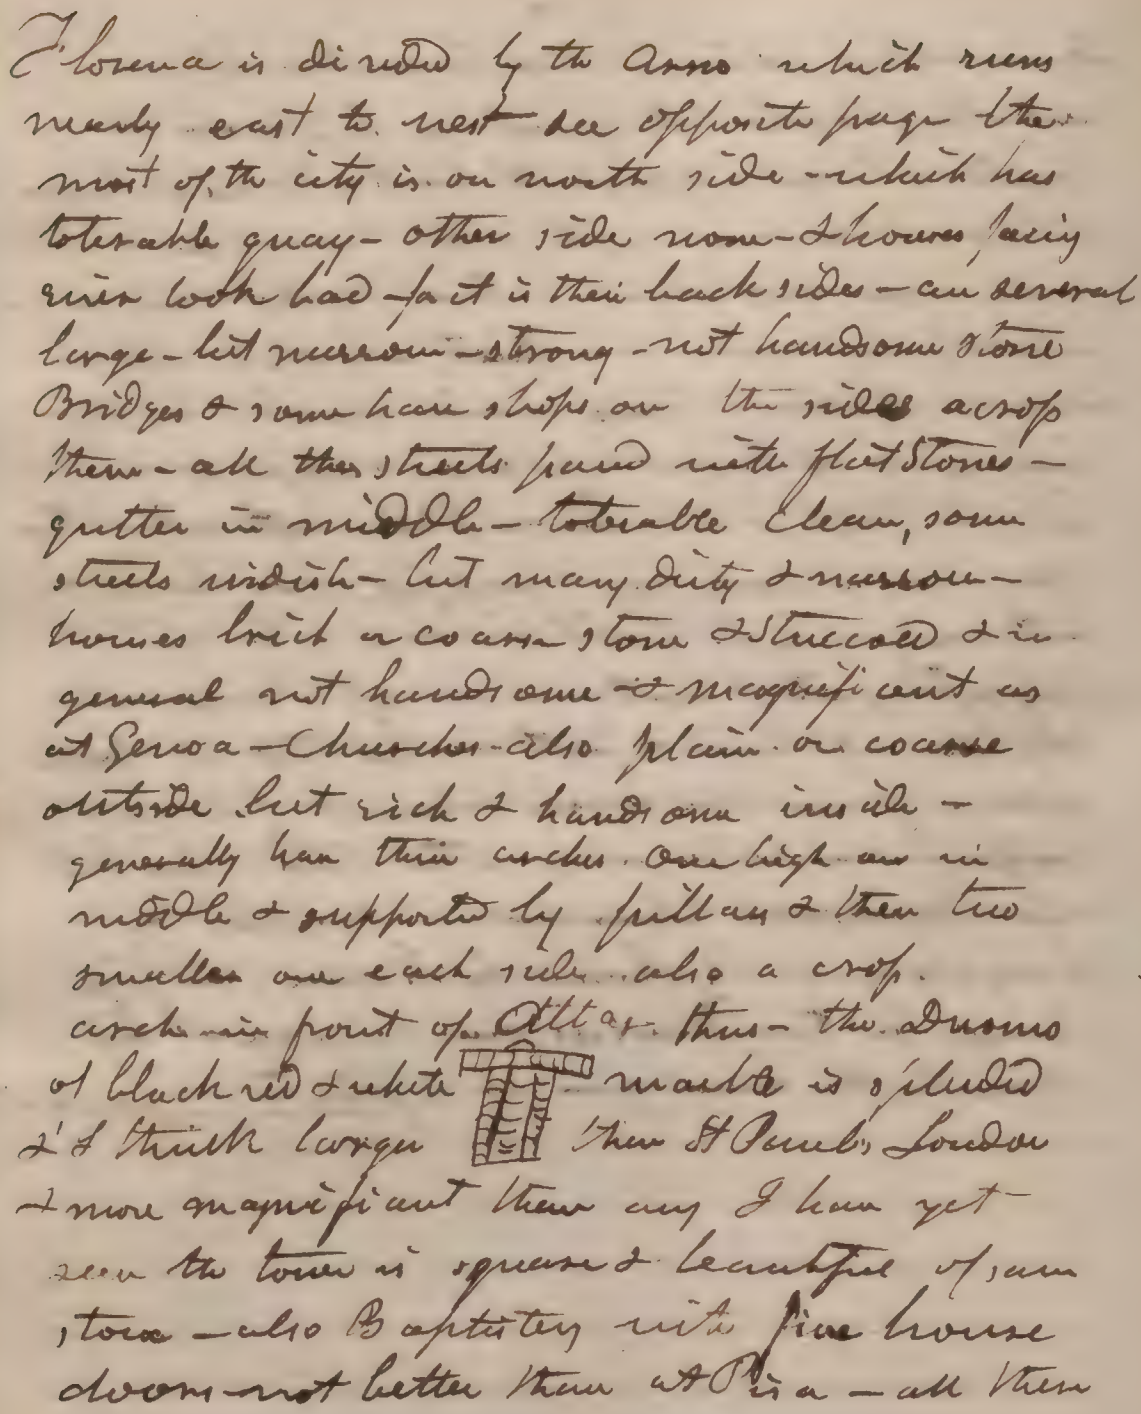 Florence is divided by the Arno which runs
nearly east to west see opposite page the
most of the city is on north side - which has
tolerable quay - other side none - & houses facing
river look bad - fact is their back sides - are several
large - but narrow - strong - not handsome stone
Bridges & some have shops on the sides across
them - all the streets paved with flat stones -
gutter in middle - tolerable clean, some
streets widish - but many dirty & narrow -
houses brick or coarse stone & stuccoed & in
general not handsome & magnificent as
at Genoa - Churches also plain or coarse
outside but rich & handsome inside -
generally have three arches. One high one in
middle & supported by pillars & then two
smaller one each side also a cross
arch in front of Altar. thus - the Duomo
of black red & white marble is splendid
& I think larger than St Pauls, London
& more magnificent than any I have yet
seen the tower is square & beautiful of same
stone - also Baptistery with fine
doors - not better than at Pisa - all these